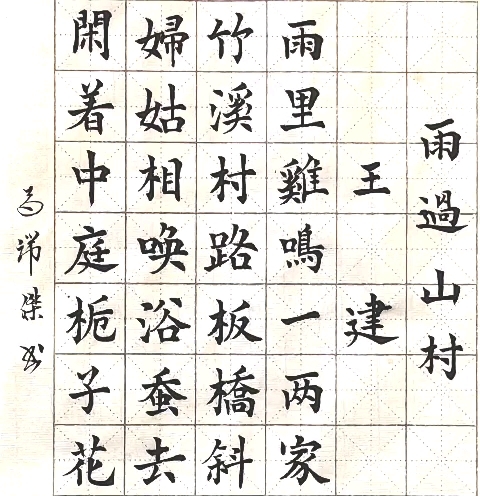 雨過山村
王建
雨里雞鳴一两家
竹溪村路板橋斜
婦姑相唤浴蚕去
閑着中庭栀子花
高瑞傑书